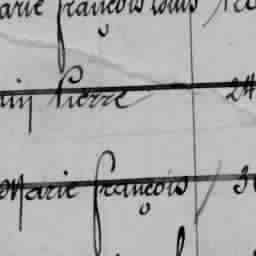 arie françois louis
in Pierre 24
Marie françois 3